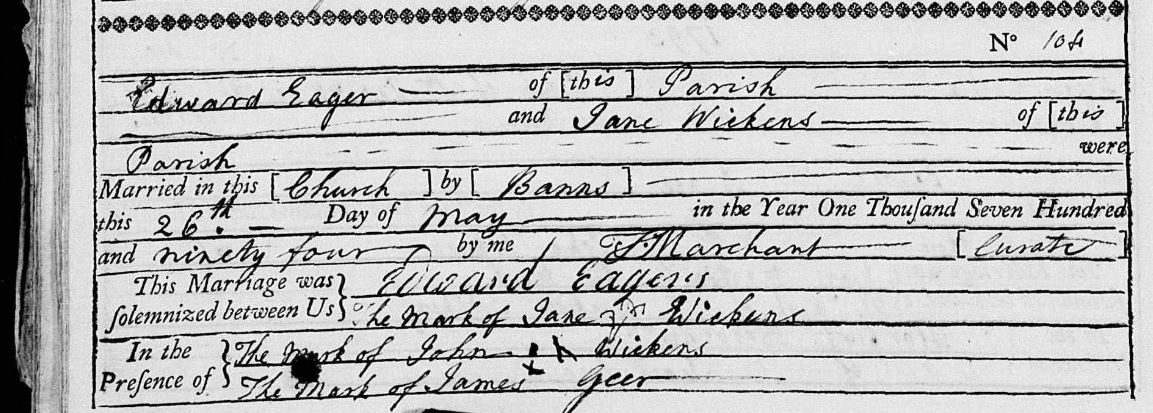 N° 104
Edward Eager of [this] Parish
and Jane Wickens of [this]
Parish were
Married in this [Church] by [Banns]
this 26th Day of May in the Year One Thouſand Seven Hundred
and ninety four by me Marchant [Curate]
This Marriage was Edward Eagers
ſolemnized between Us The Mark of Jane Wickens
In the The Mark of John Wickens
Preſence of The Mark of James Geer